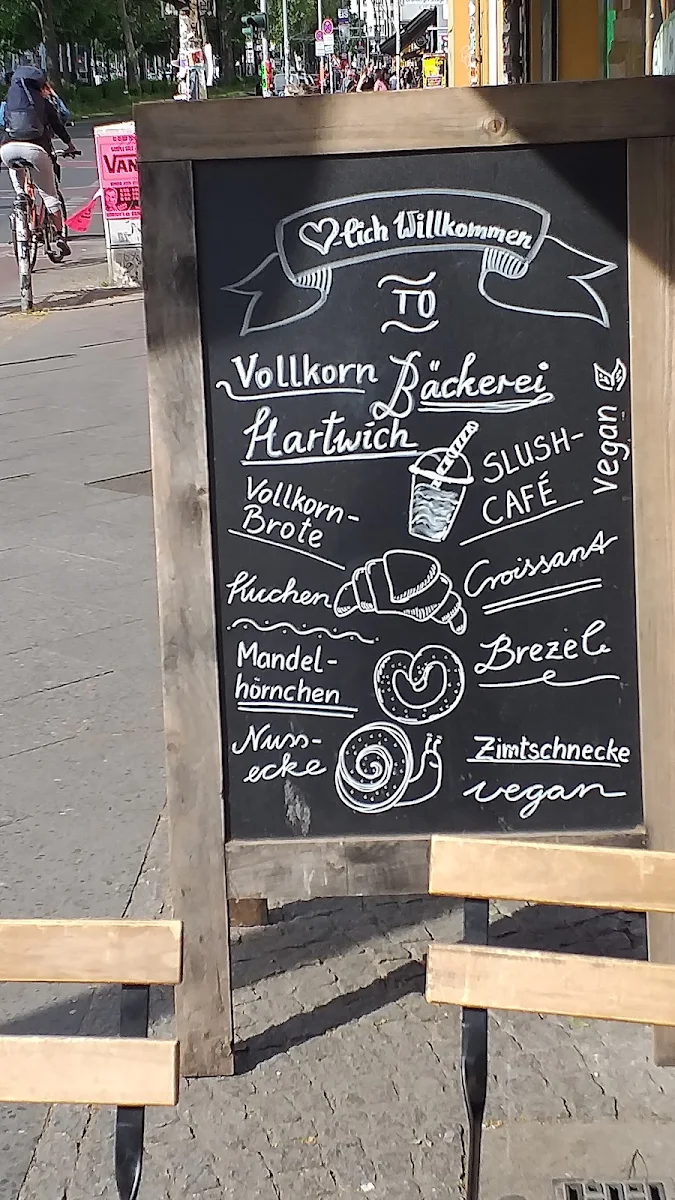 ♡-lich Willkommen
TO
Vollkorn Bäckerei
Hartwich
SLUSH-
CAFÉ
vegan
Vollkorn-
Brote
Kuchen
Croissant
Mandel-
hörnchen
Brezel
Nuss-
ecke
Zimtschnecke
vegan
VAN